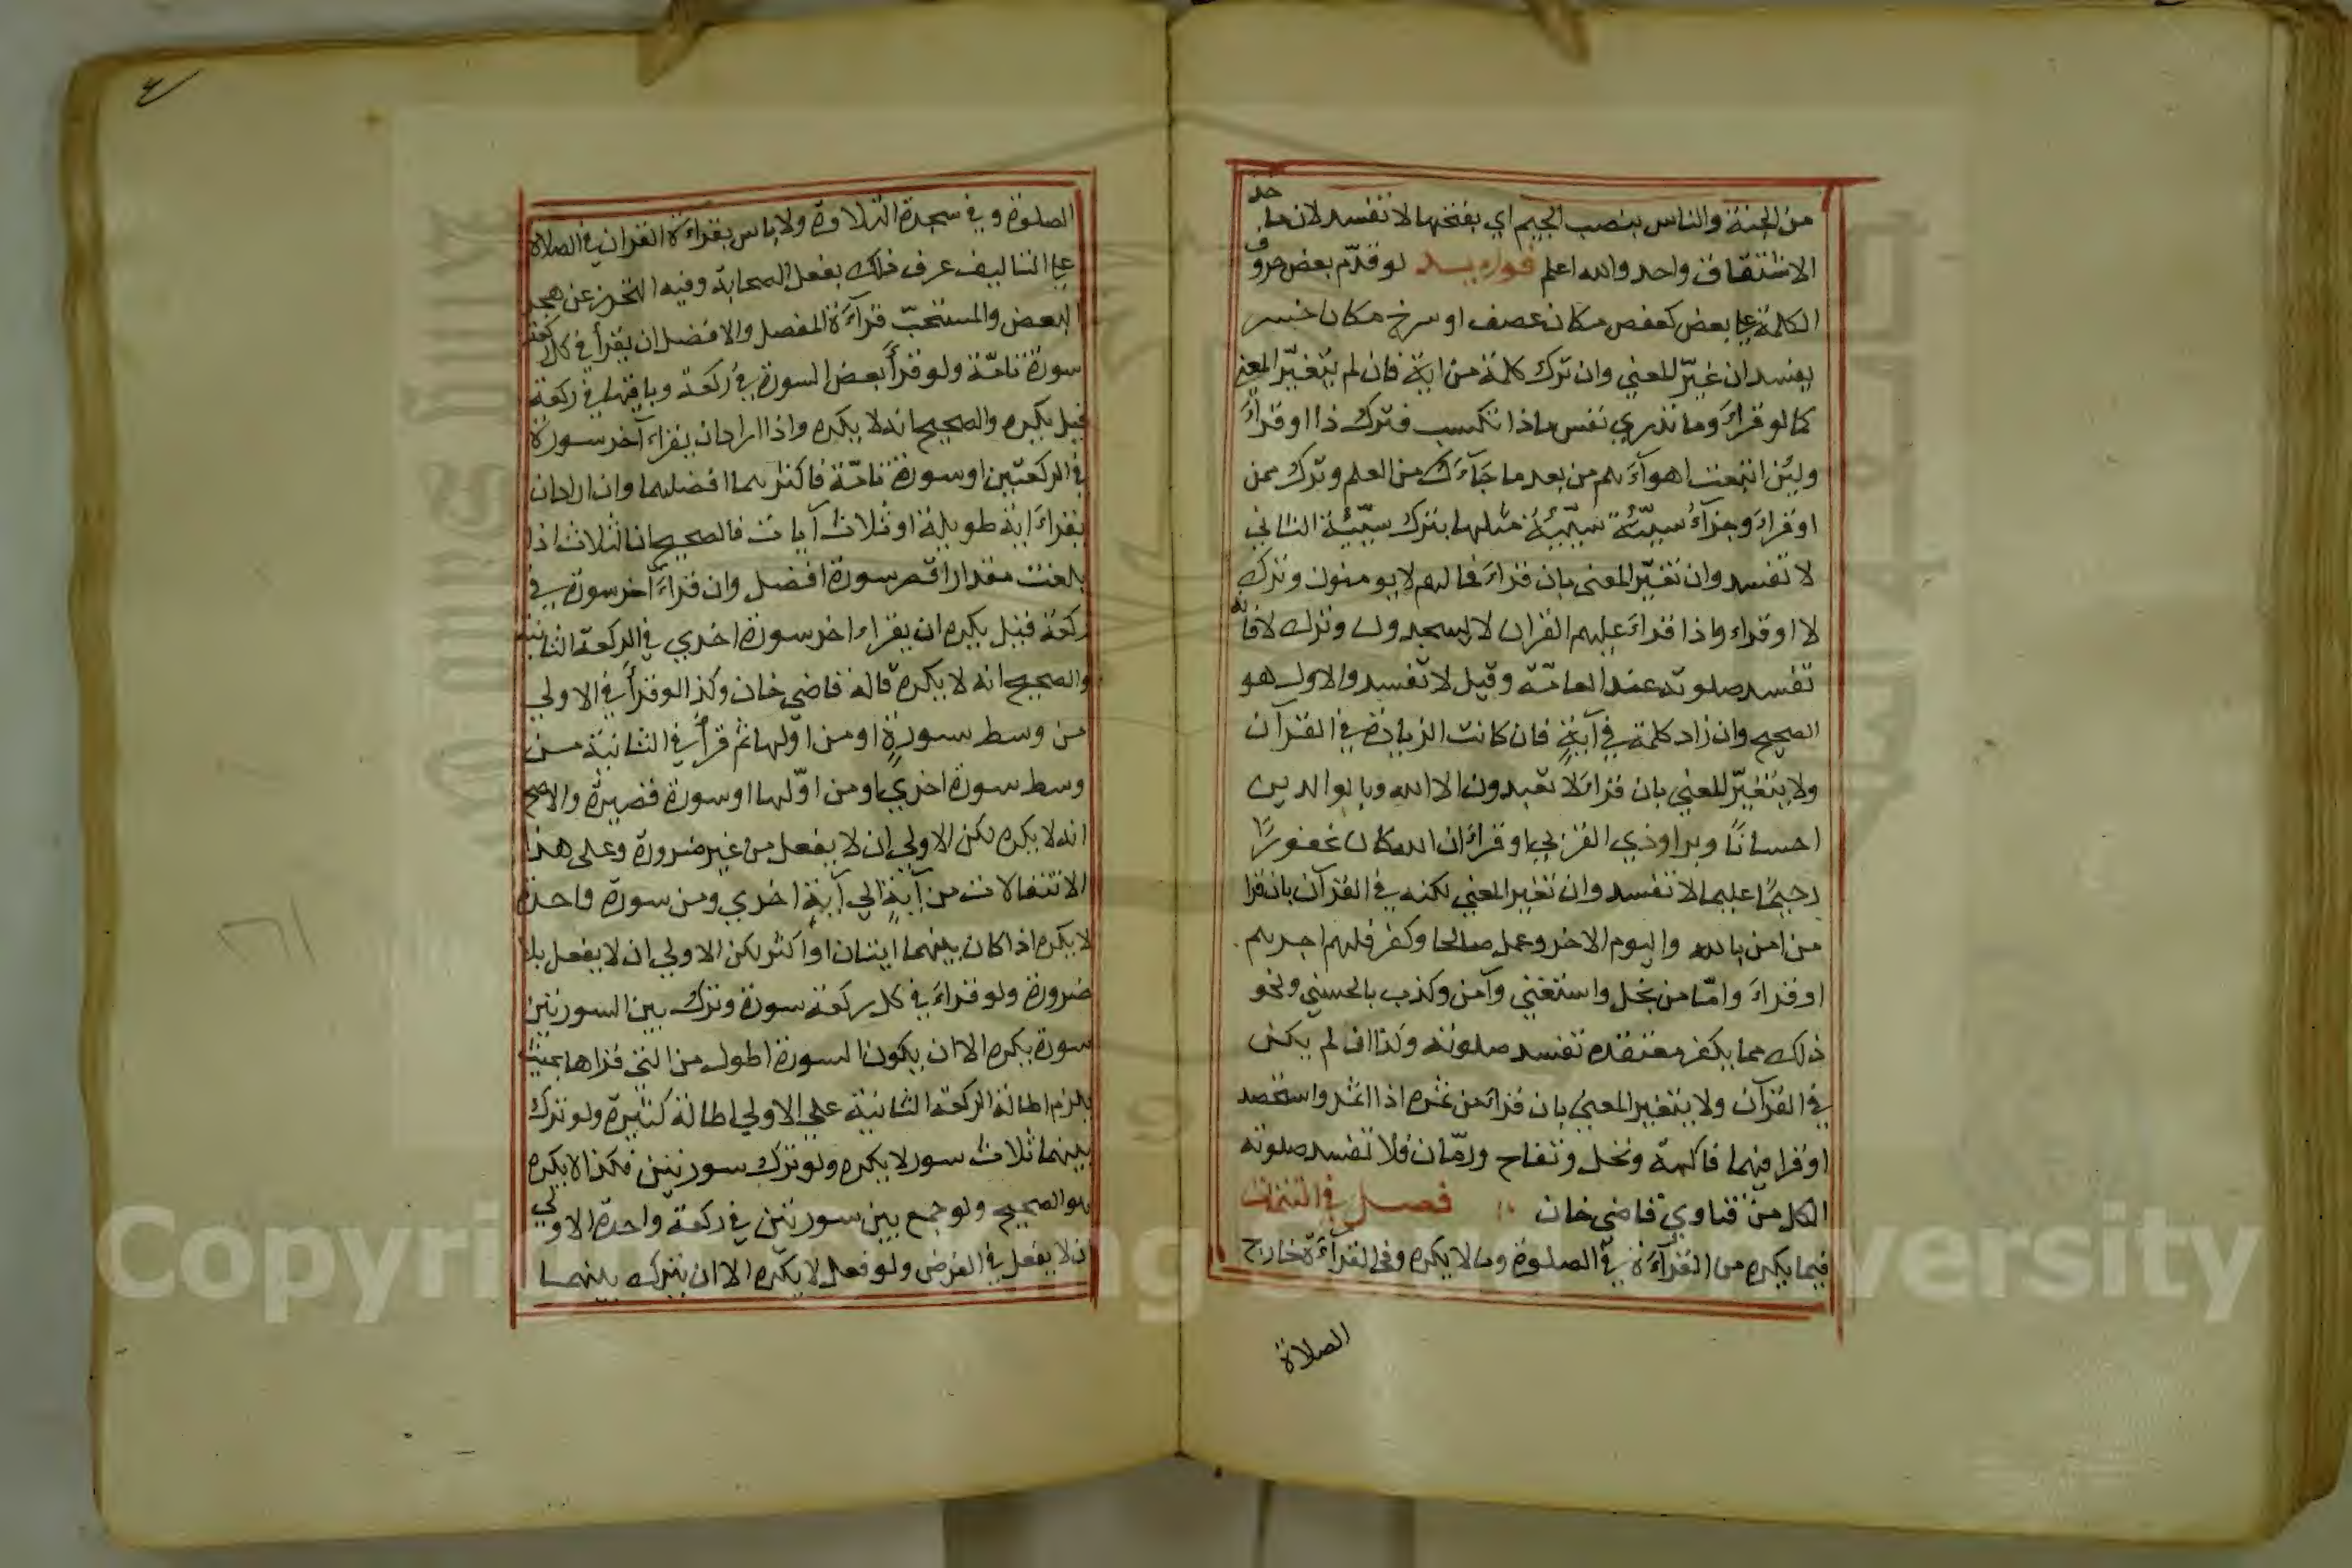 من الجنة والناس بنصب الجيم اي بفتحها لا تفسد لان ماخذ
الاشتقاق واحد والله اعلم فوايد لو قدّم بعض حروف
الكلمة علي بعض كعفص مكان عصف او سرخ مكان خسر
يفسد ان غيّر للمعني وان ترك كلمة من اية فان لم يتغيّر المعني
كما لو قراءَ وما تدري نفس ماذا تكسب فترك ذا او قرأَ
ولين اتبعت اهوآءَهم من بعد ما جَآءَكَ من العلم وترك من
او قراءَ وجزآءُ سيّئة سيّيئة مثلها بترك سيّيئة الثاني
لا تفسد وان تغيّر المعنى بان قراءَ فما لهم لا يومنون وترك
لا او قراء واذا قراءَ عليهم القران لا يسجدون وترك لا فانه
تفسد صلوته عند العامّة وقيل لا تفسد والاول هو
الصحيح وان زاد كلمة في آيةٍ فان كانت الزيادة في القرآن
ولا يتغيّر للمعني بان قراءَ لا تعبدون الا الله وبالوالدين
احسانًا وبرا وذي القربي او قراءَ ان الله كان غفورًا
رحيمًا عليما لا تفسد وان تغير المعني لكنه في القرآن بان قرا
من امن بالله واليوم الاخر وعمل صالحا وكفر فلهم اجرهم
او قراءَ وامّا من بخل واستغني وآمن وكذب بالحسني ونحو
ذلك مما يكفر معتقده تفسد صلوته وكذا ان لم يكن
في القرآن ولا يتغير المعني بان قراءَ من ثمره اذا اثمر واستحصد
او قرا فيهما فاكهة ونخل وتفاح ورمّان فلا تفسد صلوته
الكل من فتاوي قاضي خان فصل في التتمات
فيما يكره من القرآءَة في الصلوة وما لا يكره وفي القرآءَة خارج
الصلاة
الصلوة وفي سجدة التلاوة ولا باس بقراءَة القران في الصلاة
علي التاليف عرف ذلك بفعل الصحابة وفيه التحرز عن هجر
البعض والمستحبّ قرآءَة المفصل والافضل ان يقرأ في كل ركعة
سورة تامّة ولو قرأَ بعض السورة في ركعة وباقيها في ركعة
قيل يكره والصحيح انه لا يكره واذا اراد ان يقراء آخر سورة
في الركعتين او سورة تامّة فاكثرهما افضلهما وان اراد ان
يقراءَ اية طويلة او ثلاث آيات فالصحيح ان الثلاث اذا
بلغت مقدار اقصر سورة افضل وان قراءَ آخر سورة في
ركعة قيل يكره ان يقراء اخر سورة اخري في الركعة الثانية
والصحيح انه لا يكره قاله قاضي خان وكذا لو قرأَ في الاولي
من وسط سورةٍ او من اوّلها ثم قرأَ في الثانية من
وسط سورة اخري او من اوّلها او سورة قصيرة والاصح
انه لا يكره لكن الاولي ان لا يفعل من غير ضرورة وعلى هذا
الانتقالات من آيةٍ الي آيةٍ اخري ومن سورة واحدة
لا يكره اذا كان بينهما ايتان او اكثر لكن الاولي ان لا يفعل بلا
ضرورة ولو قراءَ في كل ركعة سورة وترك بين السورتين
سورة يكره الا ان يكون السورة اطول من التي قراها بحيث
يلزم اطالة الركعة الثانية علي الاولي اطالة كثيرة ولو ترك
بينهما ثلاث سور لا يكره ولو ترك سورتين فكذا لا يكره
هو الصحيح ولو جمع بين سورتين في ركعة واحدة الاولي
ان لا يفعل في الفرض ولو فعل لا يكره الا ان يترك بينهما
Copyright © King Saud University